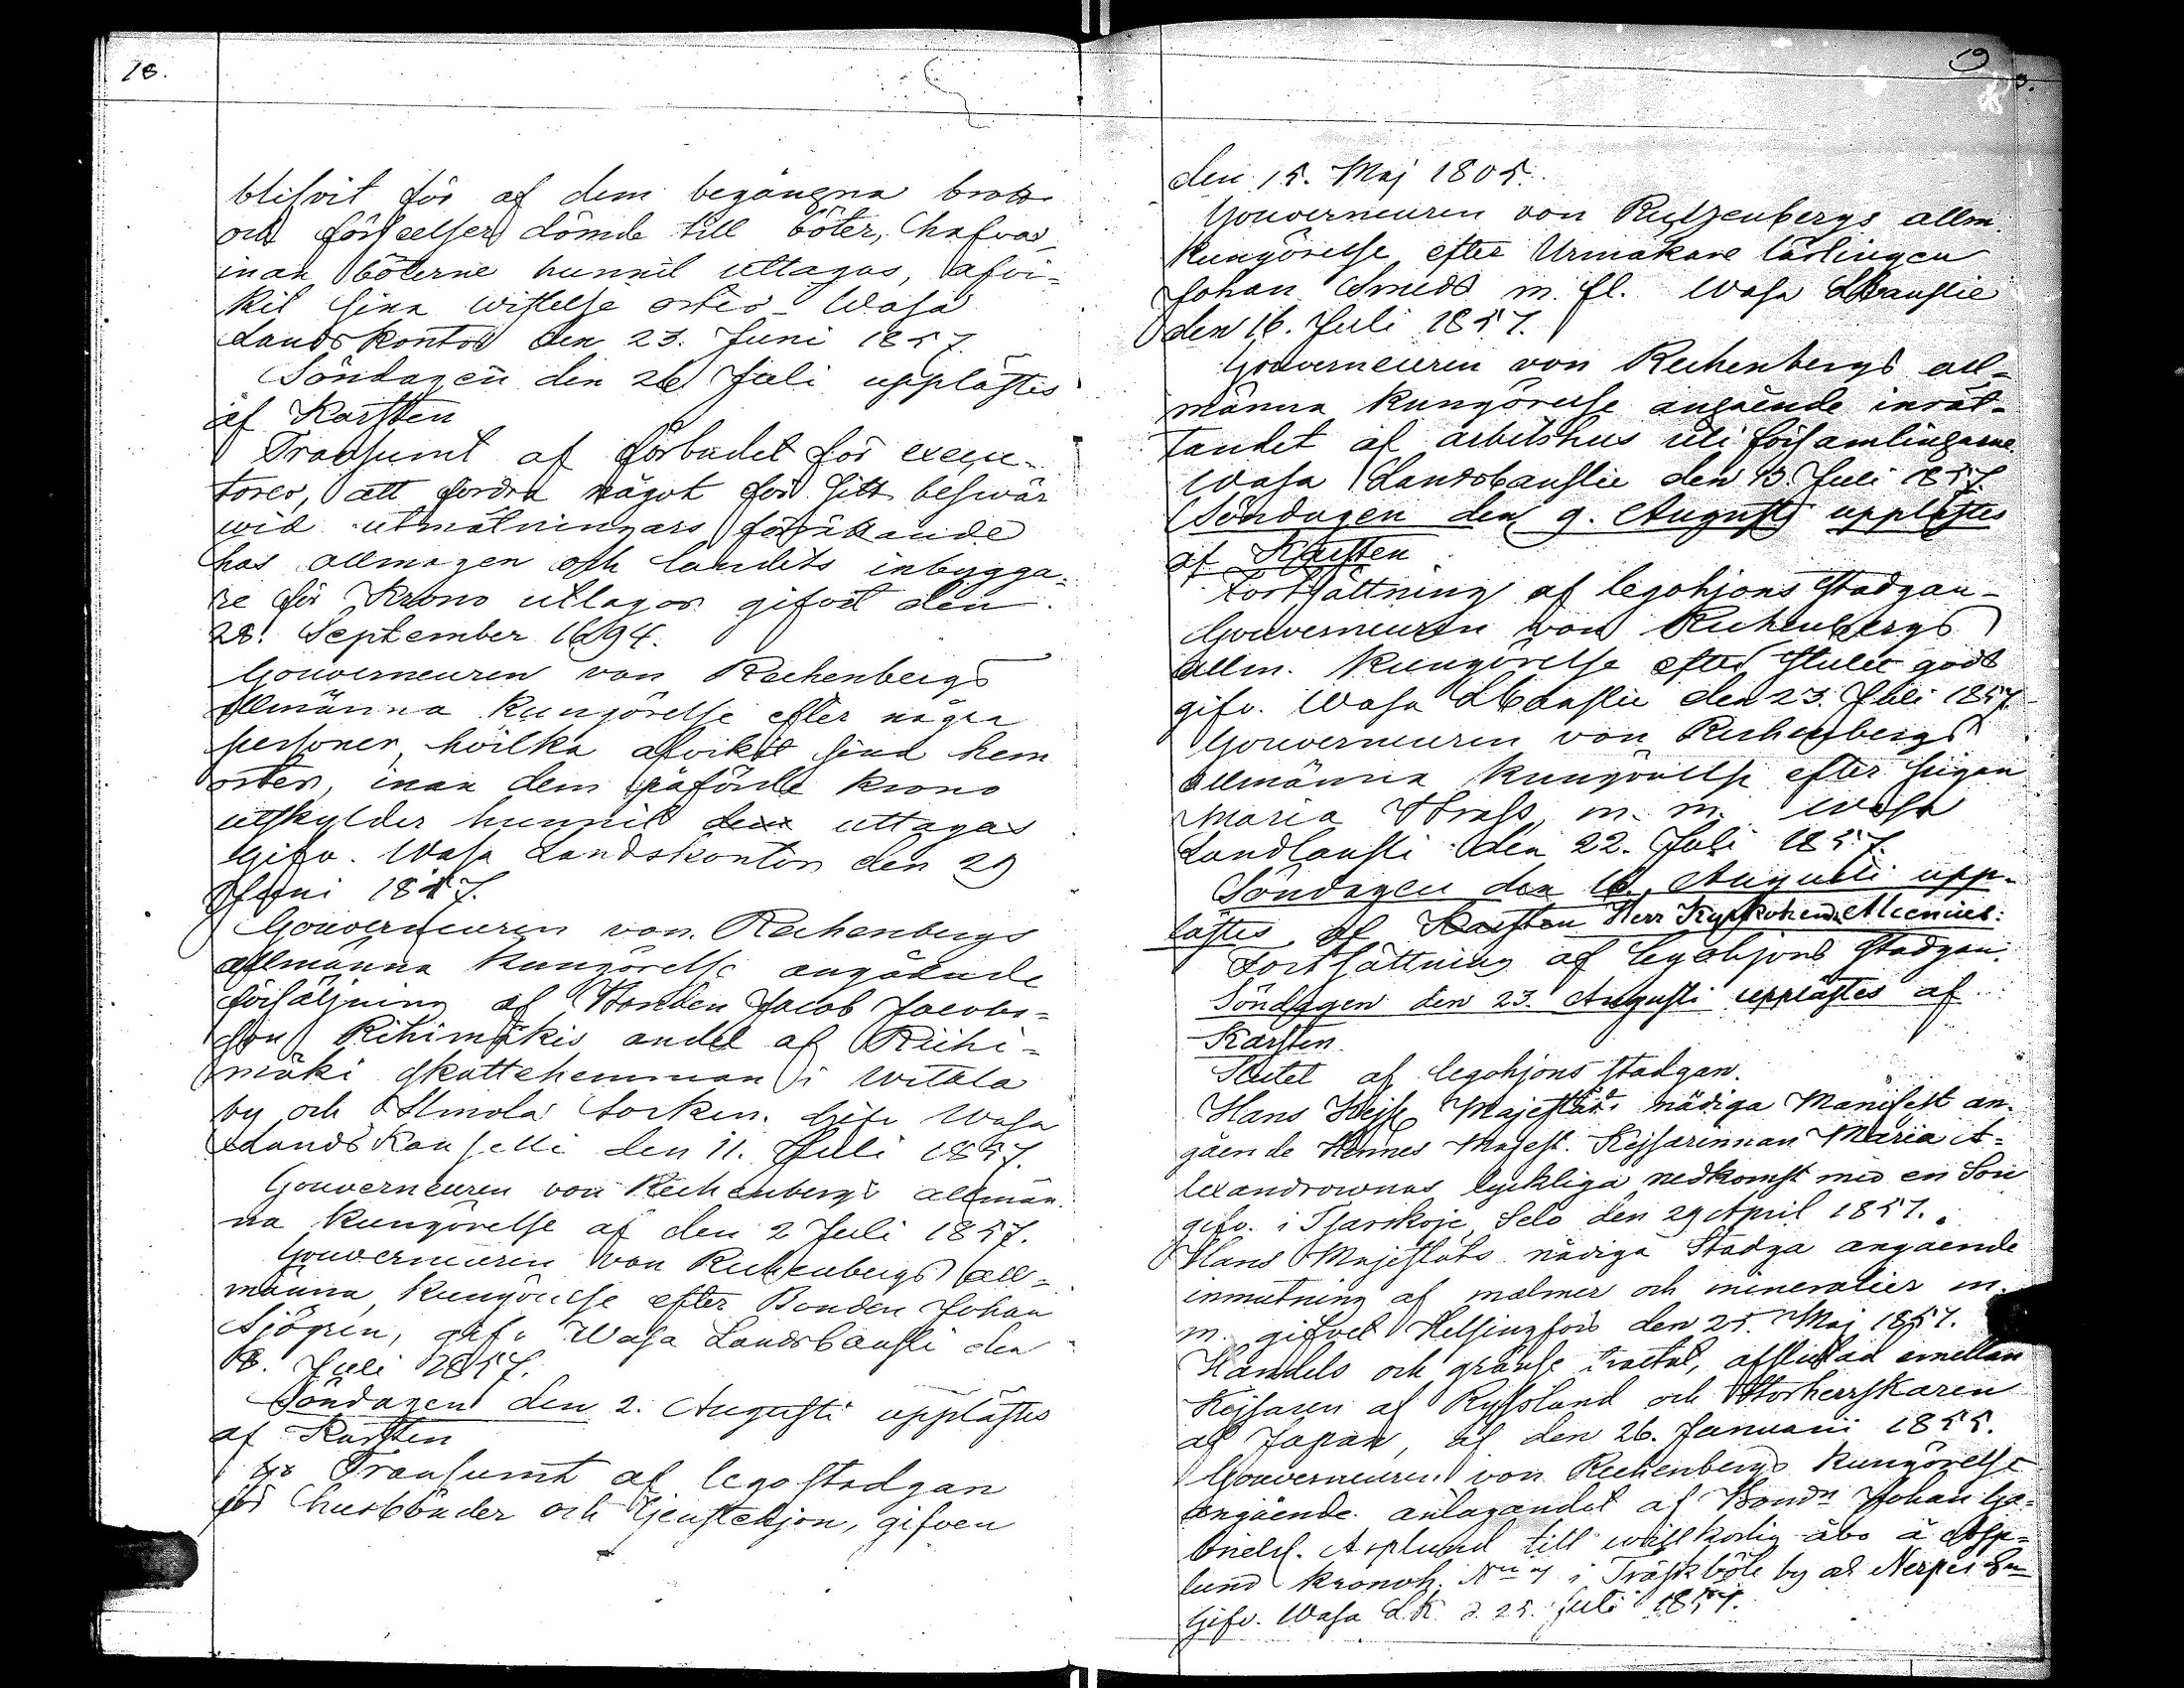 18.
blifvit för af dem begångna brott
och förseelser dömde till böter, hafva,
inan böterne hunnit uttagas, afvi-
kit sina wistelse orter. Wasa
Landskontor den 23. Juni 1857.
Söndagen den 26 Juli upplästes
af Karsten
Transumt af förbudet för exequ-
torer, att fordra något för sitt beswär
wid utmätningars förrättande
hos allmogen och landets inbygga-
re för Krono utlagor gifvet den
28. September 1694.
Gouverneuren von Rechenbergs
allmänna kungörelse efter några
personer, hvilka afvikit sina hem
orter, inan dem påförde krono
utskylder hunnit uttagas
gifv. Wasa Landskontor den 29
Juni 1857.
Gouverneuren von Rechenbergs
allmänna kungörelse angående
försäljning af Bonden Jacob Jacobs-
son Rihimäkis andel af Riihi-
mäki skattehemman i Witala
by och Ilmola Sorken. Gifv Wasa
Landskanselli den 11. Juli 1857.
Gouverneuren von Rechenbergs allmän-
na kungörelse af den 2 Juli 1857.
Gouverneuren von Rechenbergs all-
männa kungörelse efter Bonden Johan
Sjögren, gifv Wasa Landscansli den
8. Juli 1857.
Söndagen den 2. Augusti upplästes
af Karsten
Transumt af legostadgan
för husbönder och tjenstehjon, gifven
19
den 15. Maj 1805.
Gouverneuren von Rechenbergs allm.
kungörelse efter Urmakare lärlingen
Johan Smedt m. fl. Wasa LCanslie
den 16. Juli 1857.
Gouverneuren von Rechenbergs all-
männa kungörelse angående inrät-
tandet af arbetshus uti församlingarne.
Wasa Landscanslie den 13. Juli 1857.
Söndagen den 9. Augusti upplästes
af Karsten
Fortsättning af legohjons stadgan-
Gouverneuren von Rechenbergs
allm. kungörelse efter stulet gods
gifv. Wasa LCanslie den 23. Juli 1857
Gouverneuren von Rechenbergs
allmänna kungörelse efter pigan
Maria m. m. Wasa
Landcansli den 22. Juli 1857.
Söndagen den 16. Augusti upp-
lästes af Karsten Herr Alcenius:
Fortsättning af legohjons stadgan.
Söndagen den 23. Augusti upplästes af
Karsten.
Slutet af legohjons stadgan.
Hans Kejs. Majestäts nådiga Manifest an-
gående Hennes Majest. Kejsarinnan Maria A-
lexandrownas lyckliga nedkomst med en Son
gifv. i Tsarskoje Selo den 29 April 1857.
Hans Majestäts nådiga Stadga angaende
inmutning af malmer och mineralier m.
m. gifvet Helsingfors den 25. Maj 1857.
Handels och gränse tractat, afslutad emellan
Kejsaren af Ryssland och Storherrskaren
af Japan, af den 26. Januarii 1855.
Gouverneuren von Rechenbergs kungörelse
angående antagandet af Bondn Johan Ga-
brielss. Asplund till willkorlig åbo å Asp-
lund kronoh. i Träskböle by af Nerpes Sn
Gifv. Wasa L.K. d. 25. Juli 1857.